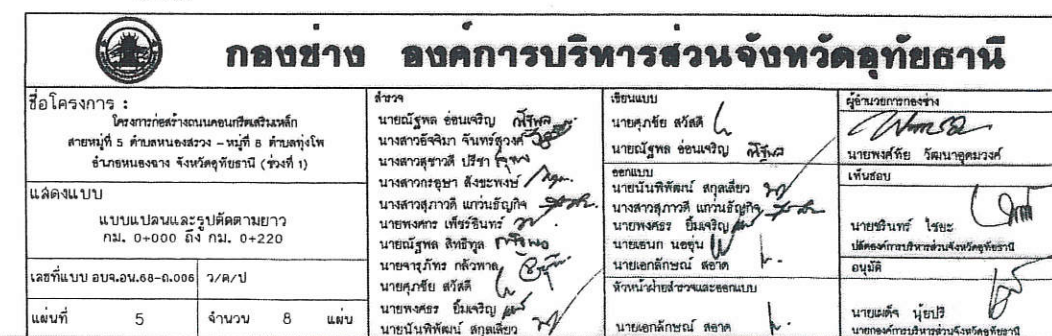 กองช่าง องค์การบริหารส่วนจังหวัดอุทัยธานี
ชื่อโครงการ :
โครงการก่อสร้างถนนคอนกรีตเสริมเหล็ก
สายหมู่ที่ 5 ตำบลหนองสรวง – หมู่ที่ 8 ตำบลทุ่งโพ
อำเภอหนองฉาง จังหวัดอุทัยธานี (ช่วงที่ 1)
แสดงแบบ
แบบแปลนและรูปตัดตามยาว
กม. 0+000 ถึง กม. 0+220
เลขที่แบบ อบจ.อน.68-ถ.006 ว/ด/ป
แผ่นที่ 5 จำนวน 8 แผ่น
สำรวจ
นายณัฐพล อ่อนเจริญ
นางสาวอัจจิมา จันทร์สุวงศ์
นางสาวสุชาวดี ปรีชา
นางสาวกรอุษา สังขะพงษ์
นางสาวสุภาวดี แกว่นธัญกิจ
นายพงศกร เพ็ชร์อินทร์
นายณัฐพล สิทธิทูล
นายจารุภัทร กลัวพาล
นายศุภชัย สวัสดี
นายพงศธร ยิ้มเจริญ
นายนันทิพัฒน์ สกุลเลี่ยว
เขียนแบบ
นายศุภชัย สวัสดี
นายณัฐพล อ่อนเจริญ
ออกแบบ
นายนันทิพัฒน์ สกุลเลี่ยว
นางสาวสุภาวดี แกว่นธัญกิจ
นายพงศธร ยิ้มเจริญ
นายเธนก นอขุ่น
นายเอกลักษณ์ สอาด
หัวหน้าฝ่ายสำรวจและออกแบบ
นายเอกลักษณ์ สอาด
ผู้อำนวยการกองช่าง
นายพงศ์ทัย วัฒนาอุดมวงศ์
เห็นชอบ
นายชรินทร์ ไชยะ
ปลัดองค์การบริหารส่วนจังหวัดอุทัยธานี
อนุมัติ
นายเผด็จ นุ้ยปรี
นายกองค์การบริหารส่วนจังหวัดอุทัยธานี